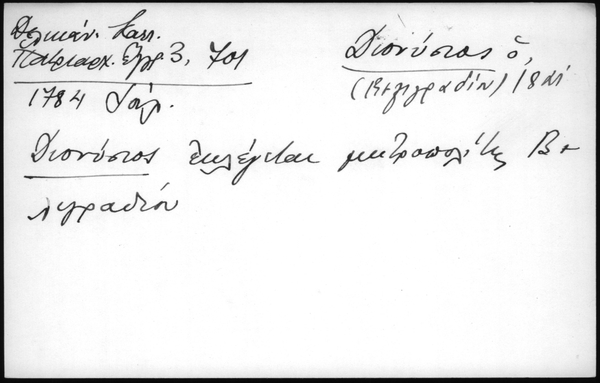 Δελικάν. Καλλ.
Πατριαρχ. Έγγρ 3, 701
1784 Ἰούλ.
Διονύσιος ὁ,
(Βελιγραδίου) 18 αἰ
Διονύσιος ἐκλέγεται μητροπολίτης Βε
λιγραδίου